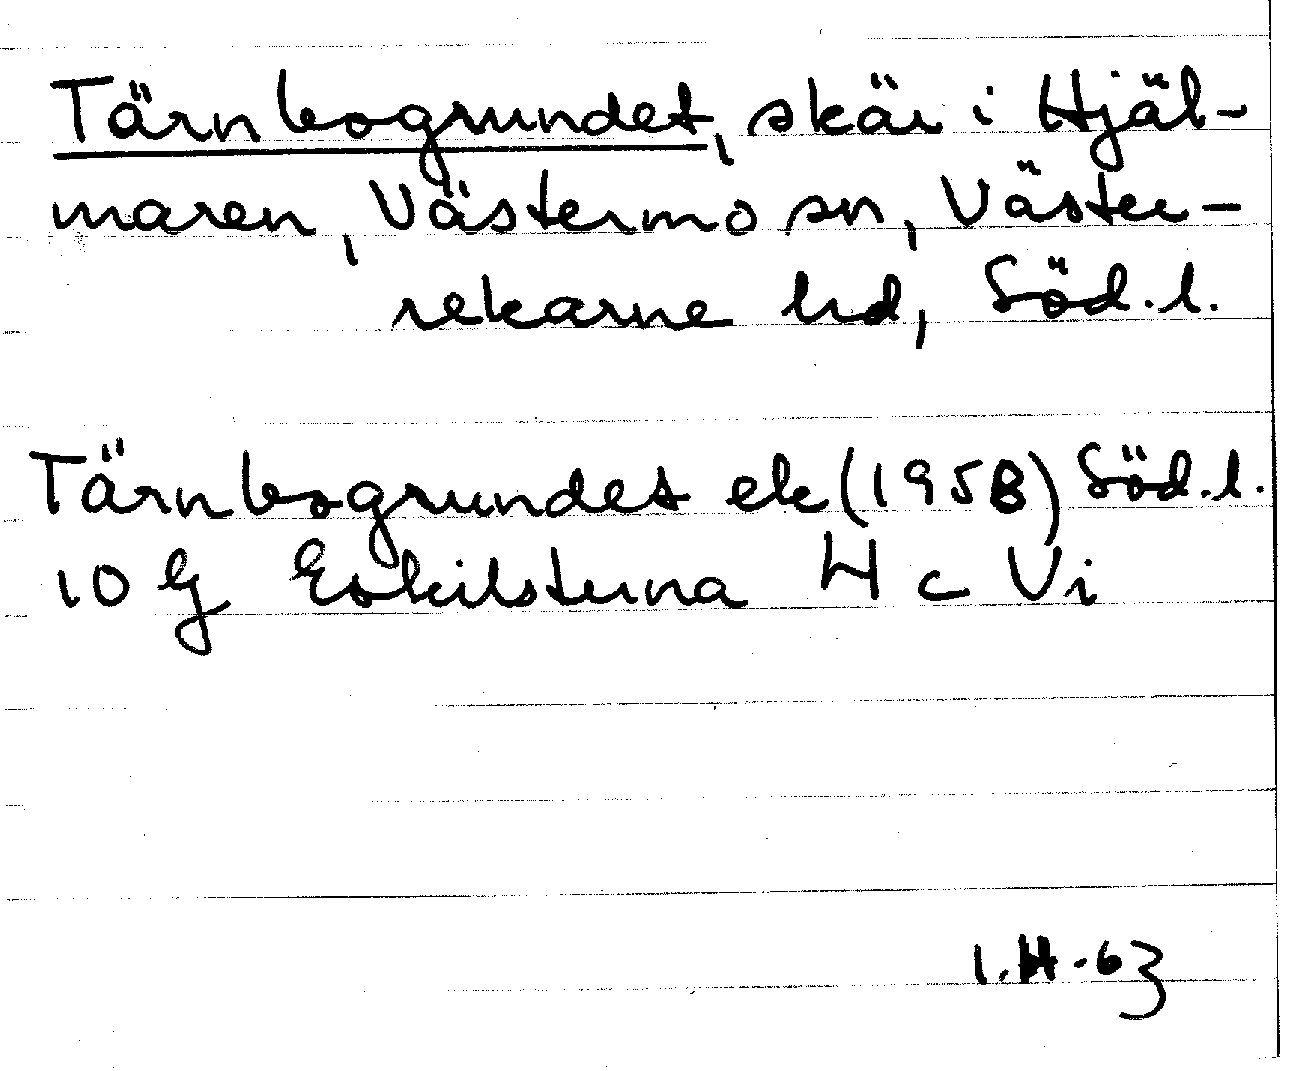 Tärnbogrundet, skär i Hjäl-
maren, Västermo sn, Väster-
rekarne hd, Söd.l.
Tärnbogrundet ek (1958) Söd.l.
10 G Eskilstuna H c Vi